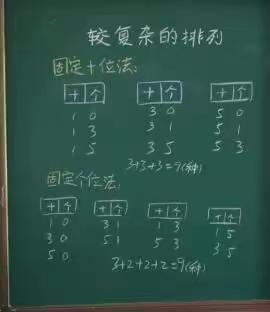 较复杂的排列
固定十位法:
十个 十个 十个
1 0 3 0 5 0
1 3 3 1 5 1
1 5 3 5 5 3
3+3+3=9(种)
固定个位法:
十个 十个 十个 十个
1 0 3 1 1 3 1 5
3 0 5 1 5 3 3 5
5 0
3+2+2+2=9(种)